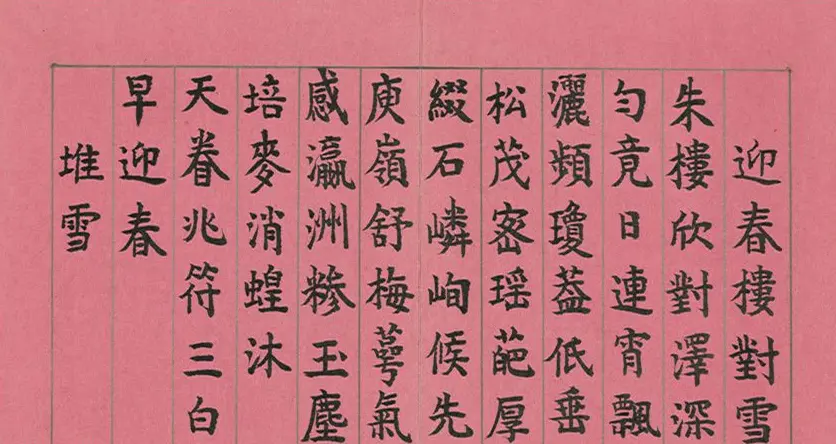 迎春樓對雪
朱樓欣對澤深
勻竟日連宵飄
灑頻瓊葢低垂
松茂密瑤葩厚
綴石嶙峋候先
庾嶺舒梅萼氣
感瀛洲糝玉塵
培麥消蝗沐
天眷兆符三白
早迎春
堆雪